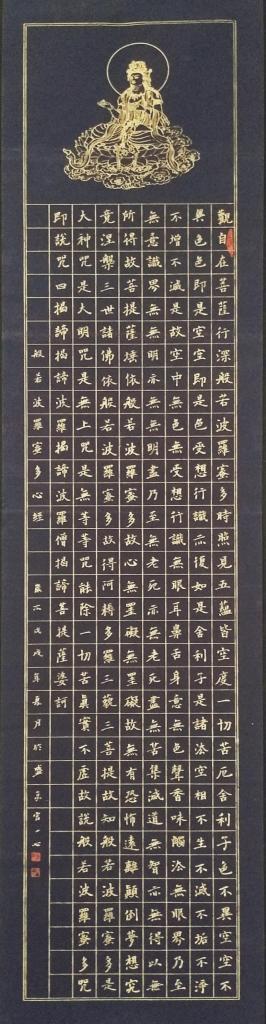 觀自在菩薩行深般若波羅蜜多時照見五蘊皆空度一切苦厄舍利子色不異空空不
異色色即是空空即是色受想行識亦復如是舍利子是諸法空相不生不滅不垢不淨
不增不減是故空中無色無受想行識無眼耳鼻舌身意無色聲香味觸法無眼界乃至
無意識界無無明亦無無明盡乃至無老死亦無老死盡無苦集滅道無智亦無得以無
所得故菩提薩埵依般若波羅蜜多故心無罣礙無罣礙故無有恐怖遠離顛倒夢想究
竟涅槃三世諸佛依般若波羅蜜多故得阿耨多羅三藐三菩提故知般若波羅蜜多是
大神咒是大明咒是無上咒是無等等咒能除一切苦真實不虛故說般若波羅蜜多咒
即說咒曰揭諦揭諦波羅揭諦波羅僧揭諦菩提薩婆訶
般若波羅蜜多心經
歲次戊戌年月於盛京